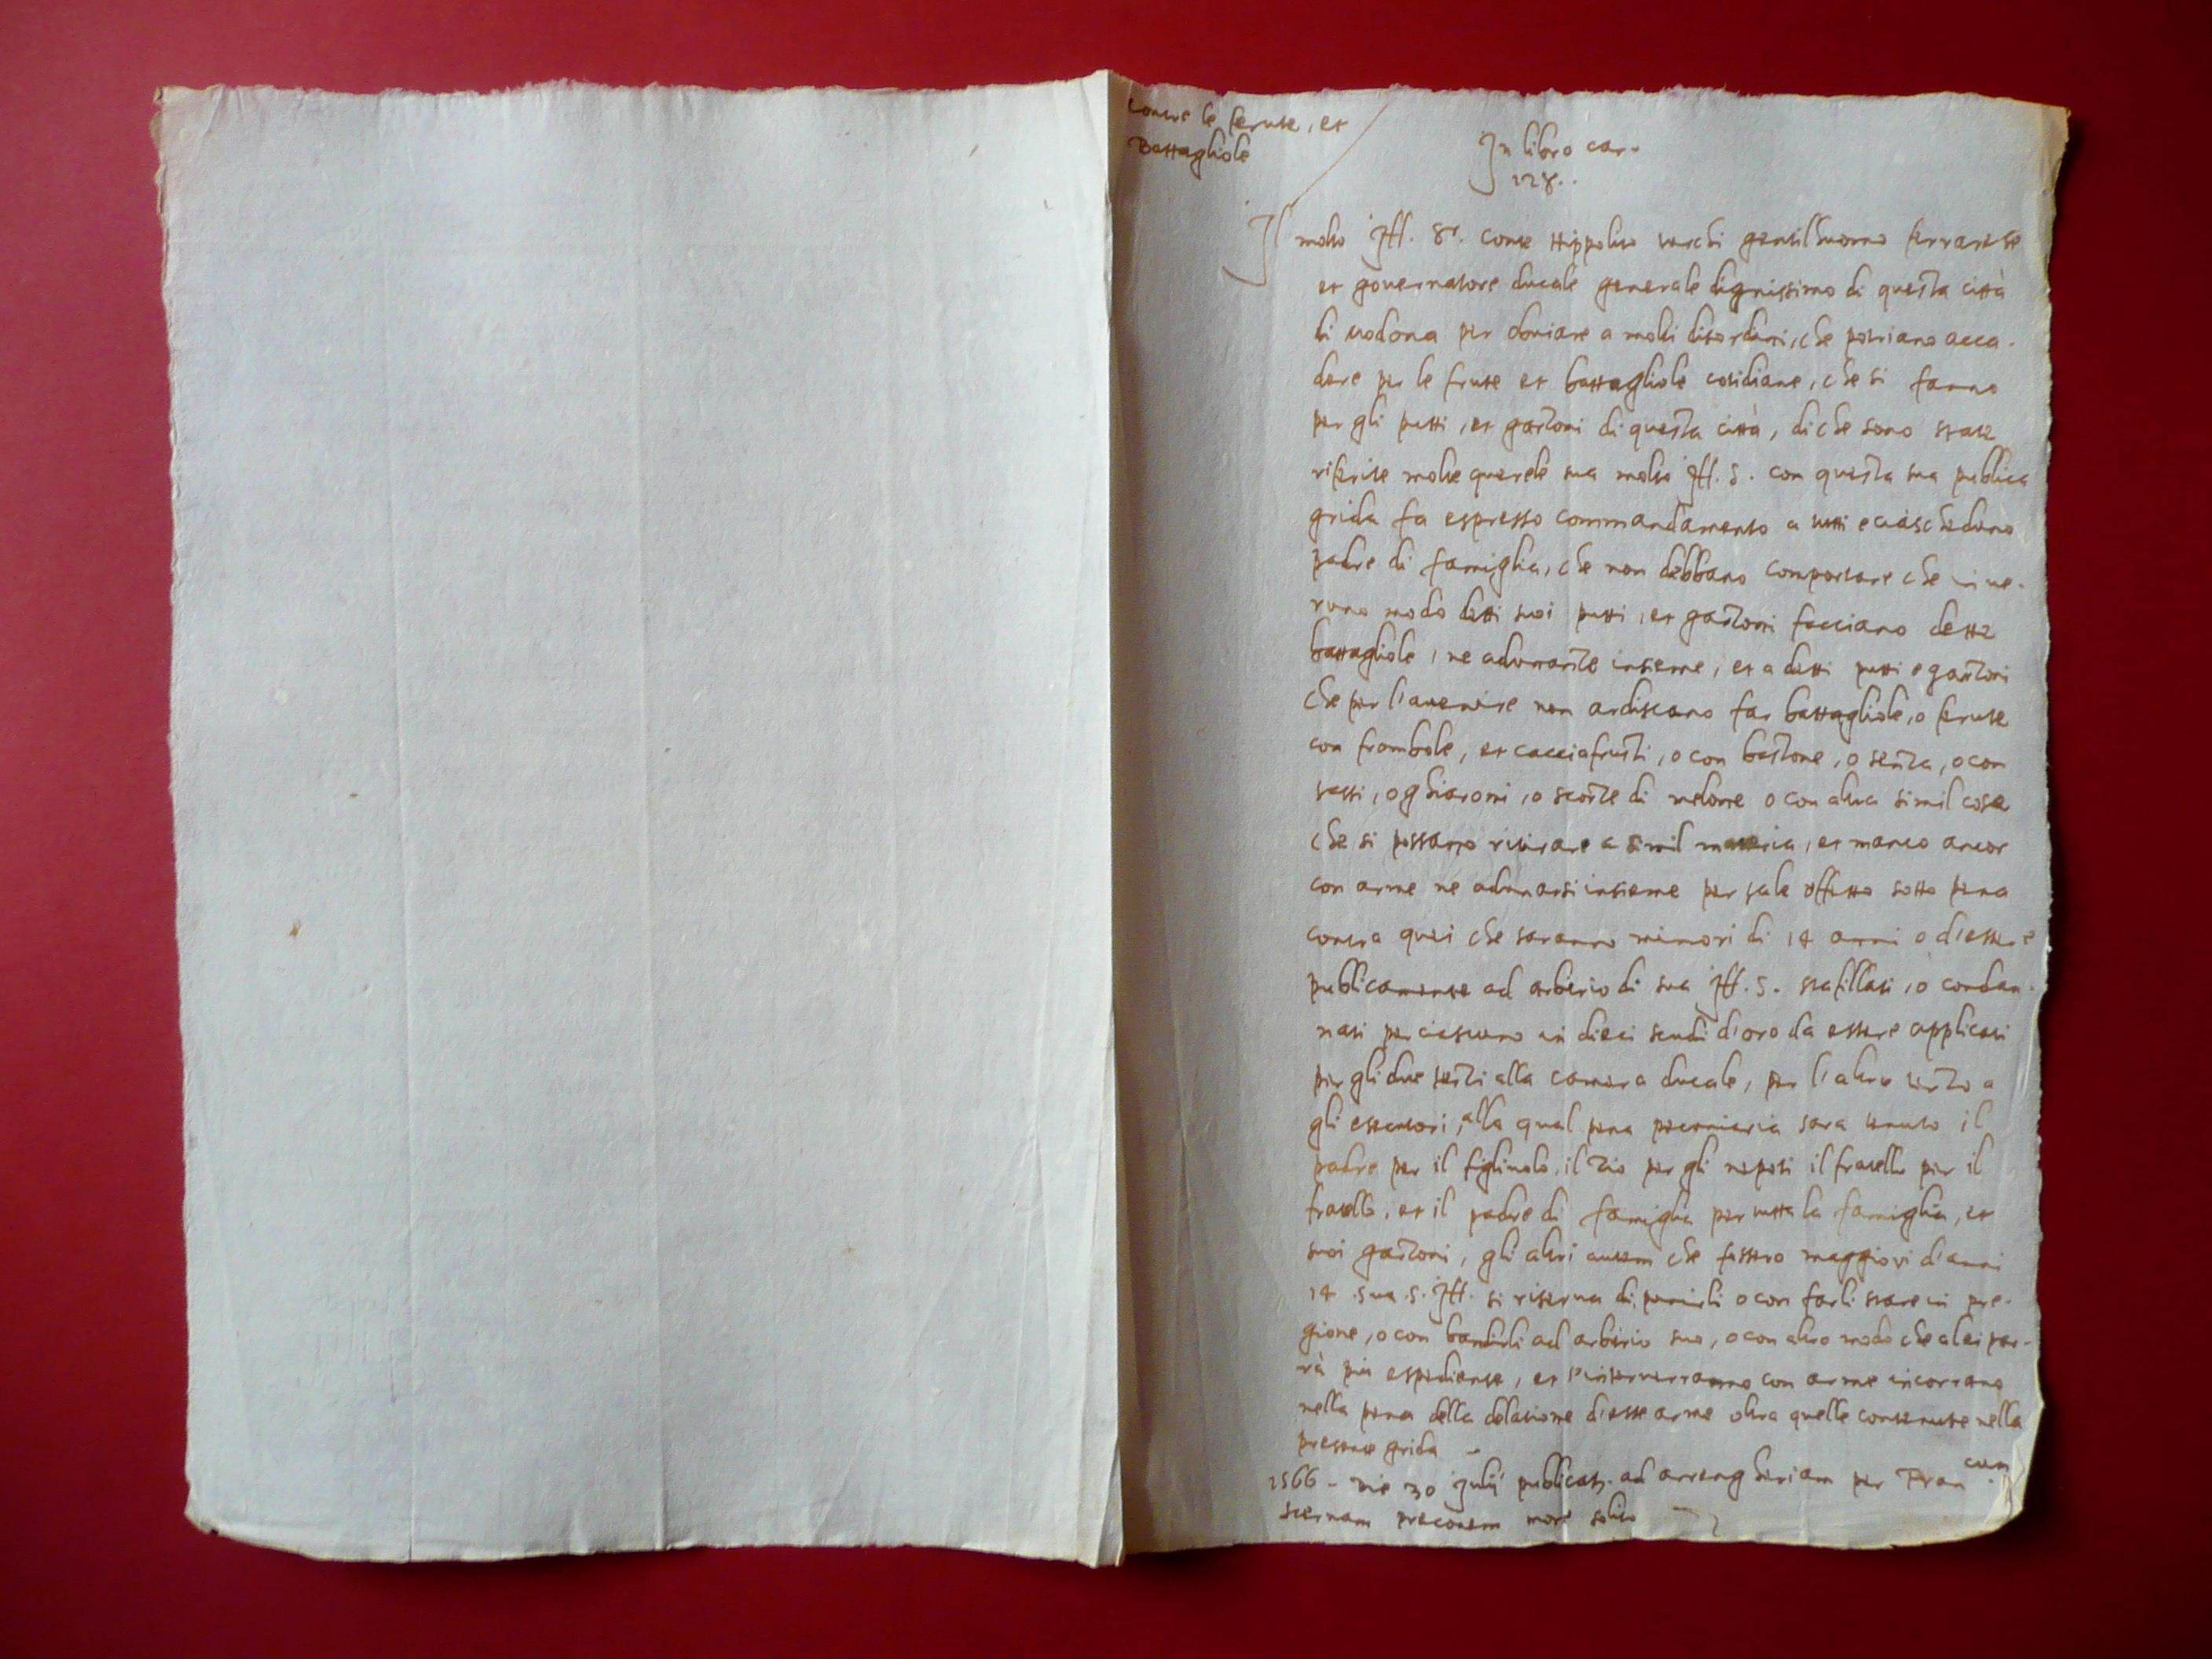 contra le frute, et
Battagliole
In libro car.
128..
Il molto Ill. Sr. Conte Hippolito turchi gentilhuomo ferrarese
et governatore ducale generale dignissimo di questa città
di modona per obviare a molti disordini, che potriano acca-
dere per le frute et battagliole cotidiane, che si fanno
per gli putti, et garzoni di questa città, di che sono state
riferite molte querele sua molto Ill. S. con questa sua publica
grida fa espresso commandamento a tutti e ciascheduno
padre di famiglia, che non debbano comportare che in ve-
runo modo detti suoi putti, et garzoni facciano dette
battagliole, ne adunarse insieme, et a detti putti e garzoni
che per l'avenire non ardiscano far battagliole, o frute
con frombole, et cacciafrusti, o con bastone, o senza, o con
sassi, o ghiaroni, o scorze di melone o con altra simil cosa
che si possano ritirare a simil materia, et manco ancor
con arme ne adunarsi insieme per tale effetto sotto pena
contra quei che saranno minori di 14 anni o d'essere
publicamente ad arbitrio di sua Ill. S. stafillati, o condan-
nati per ciascuno in dieci scudi d'oro da essere applicati
per gli due terzi alla camera ducale, per l'altro terzo a
gli essecutori, alla qual pena pecuniaria sara tenuto il
padre per il figliuolo, il zio per gli nepoti il fratello per il
fratello, et il padre di famiglia per tutta la famiglia, et
suoi garzoni, gli altri autem che fossero maggiori d'anni
14 .sua .S. Ill. si riserva di punirli o con farli stare in pre-
gione, o con bandirli ad arbitrio suo, o con altro modo che a lei par-
rà più espediente, et s'interverranno con arme incorrano
nella pena della delatione d'esse arme oltra quelle contenute nella
presente grida -
1566 - Die 30 Julij publicat. ad arrengheriam per Fran cum
preconem more solito